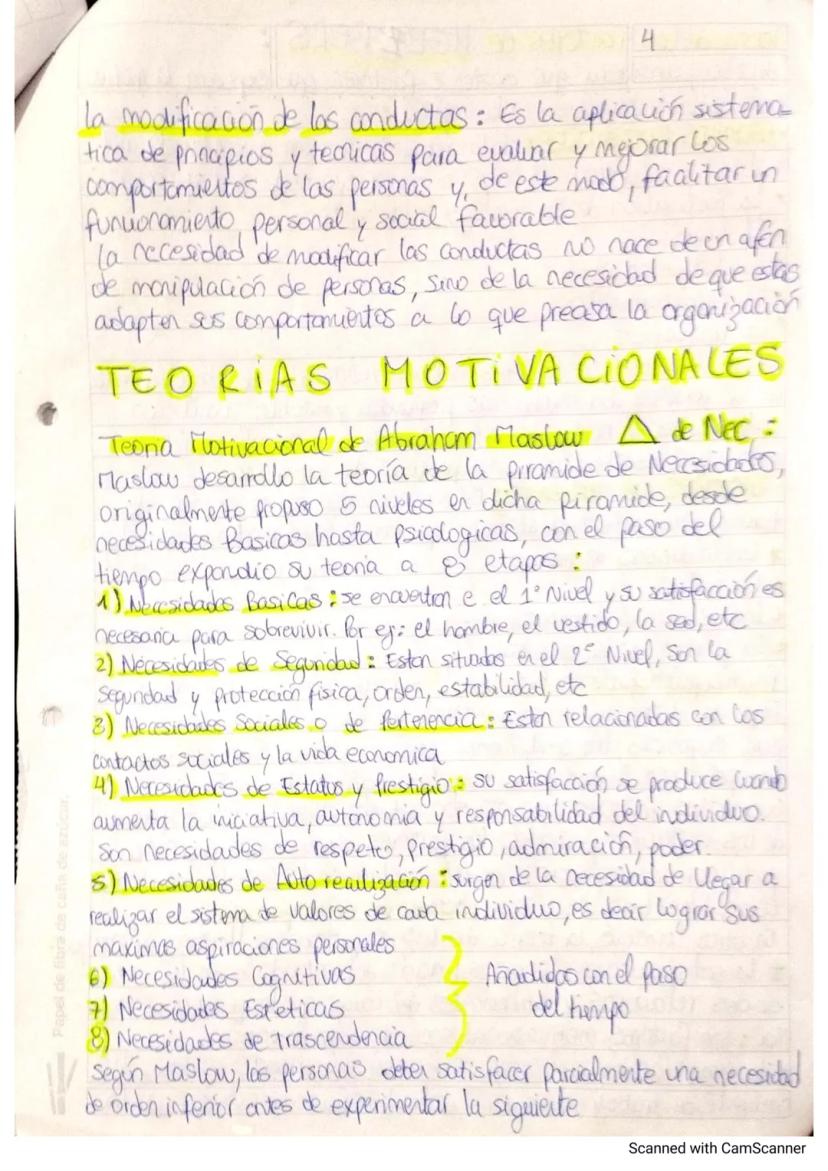 4
La modificación de las conductas: Es la aplicación sistema-
tica de principios y tecnicas para evaluar y mejorar los
comportamientos de las personas y, de este modo, facilitar un
funcionamiento personal y social favorable
La necesidad de modificar las conductas no nace de un afán
de manipulación de personas, sino de la necesidad de que estas
adapten sus comportamientos a lo que precisa la organización
TEORIAS MOTIVACIONALES
Teoria Motivacional de Abraham Maslow △ de Nec.:
Maslow desarrollo la teoría de la piramide de Necesidades,
originalmente propuso 5 niveles en dicha piramide, desde
necesidades Basicas hasta psicologicas, con el paso del
tiempo expandio su teoria a 8 etapas:
1) Necesidades Basicas: se encuentran e el 1° Nivel y su satisfacción es
necesaria para sobrevivir. Por ej: el hambre, el vestido, la sed, etc
2) Necesidades de Seguridad: Estan situadas en el 2° Nivel, Son la
Seguridad y protección fisica, orden, estabilidad, etc
3) Necesidades Sociales o de Pertenencia: Estan relacionadas con los
contactos sociales y la vida economica
4) Necesidades de Estatus y Prestigio: su satisfacción se produce cuando
aumenta la iniciativa, autonomia y responsabilidad del individuo.
Son necesidades de respeto, prestigio, admiración, poder.
5) Necesidades de Auto realización: surgen de la necesidad de llegar a
realizar el sistema de valores de cada individuo, es decir lograr sus
maximas aspiraciones personales
6) Necesidades Cognitivas
7) Necesidades Esteticas
8) Necesidades de Trascendencia
Añadidas con el paso
del tiempo
según Maslow, las personas deben satisfacer parcialmente una necesidad
de orden inferior antes de experimentar la siguiente
Papel de fibra de caña de azúcar.
Scanned with CamScanner